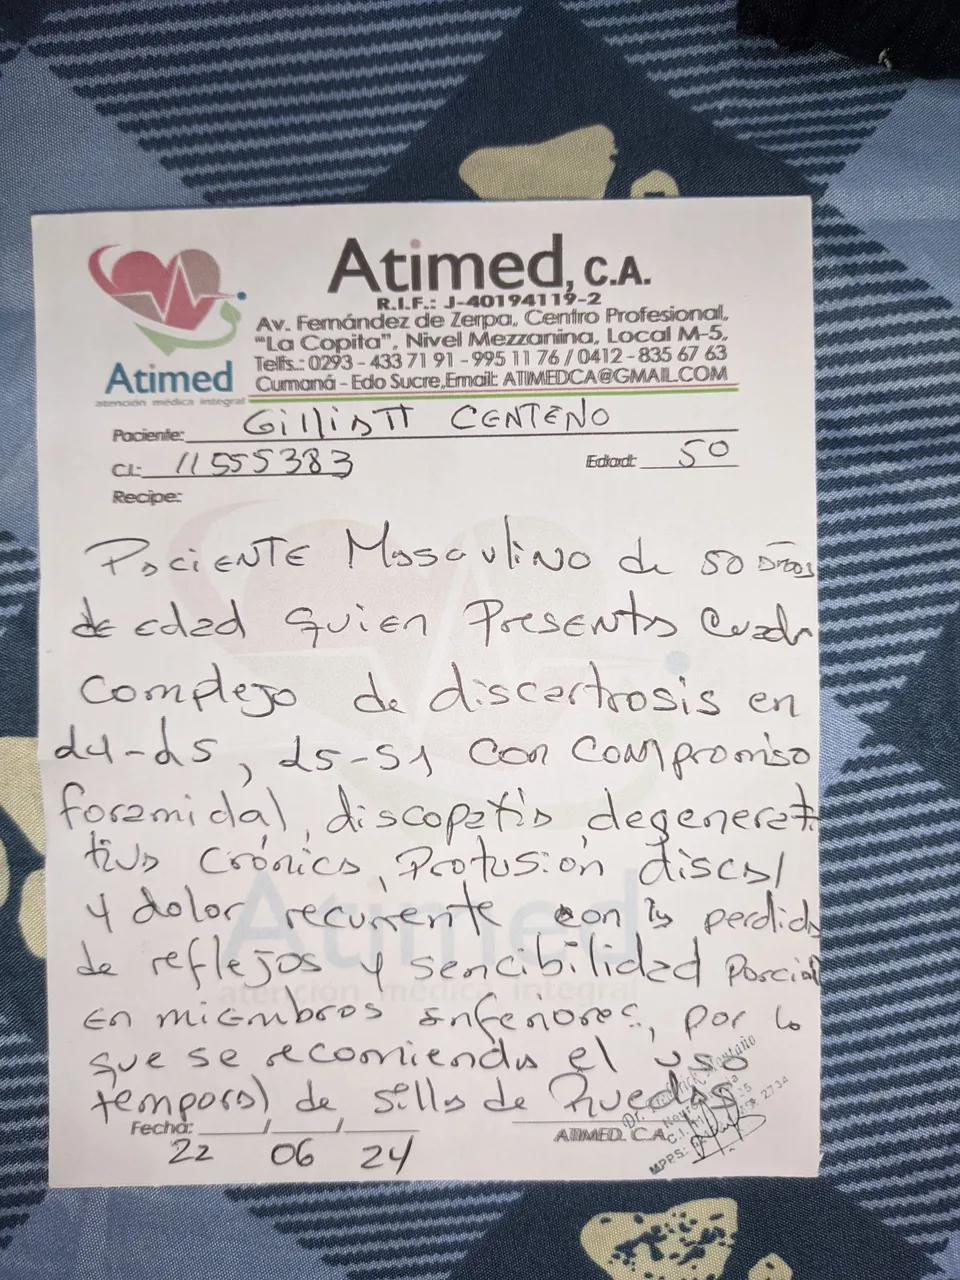 Atimed, C.A.
R.I.F.: J-40194119-2
Av. Fernández de Zerpa, Centro Profesional,
"La Copita", Nivel Mezzanina, Local M-5,
Telfs.: 0293 - 433 71 91 - 995 11 76 / 0412 - 835 67 63
Cumaná - Edo Sucre, Email: ATIMEDCA@GMAIL.COM
Atimed
atención médica integral
Paciente: Gilliatt CENTENO
C.I.: 11555383 Edad: 50
Recipe:
Paciente Masculino de 50 años
de edad quien Presenta Cuadro
complejo de discartrosis en
L4-L5, L5-S1 con compromiso
foramidal, discopatia degenerati
tiva crónica, Protusión discal
y dolor recurrente con la perdida
de reflejos y sencibilidad parcial
En miembros inferiores, por lo
que se recomienda el uso
temporal de silla de Ruedas
Fecha: 22 / 06 / 24
ATIMED. C.A.
Atimed
atención médica integral
Dr.
C.I.
MPPS: